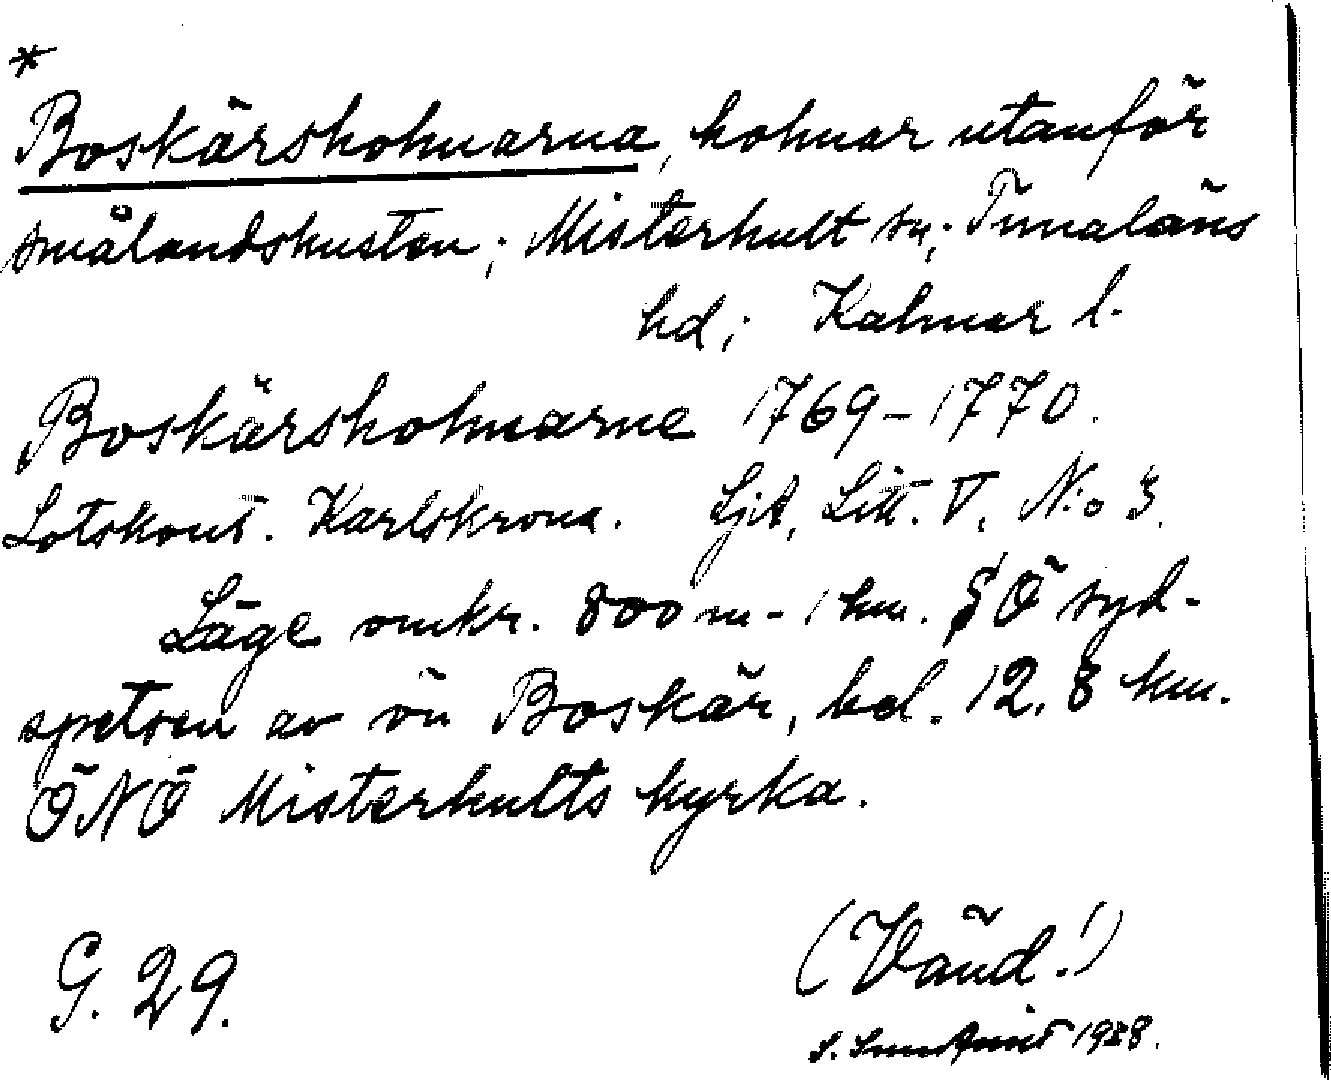 *
Boskärsholmarna, holmar utanför
smålandskusten; Misterhult sn; Tunaläns
hd; Kalmar l.
Boskärsholmarne 1769-1770.
Lotskont. Karlskrona. Sjöt. Litt. V. N:o 3.
Läge omkr. 800 m - 1 km. SÖ syd-
spetsen av ön Boskär, bel. 12,8 km.
ÖNÖ Misterhults kyrka.
(Vänd!)
G. 29.
1938.